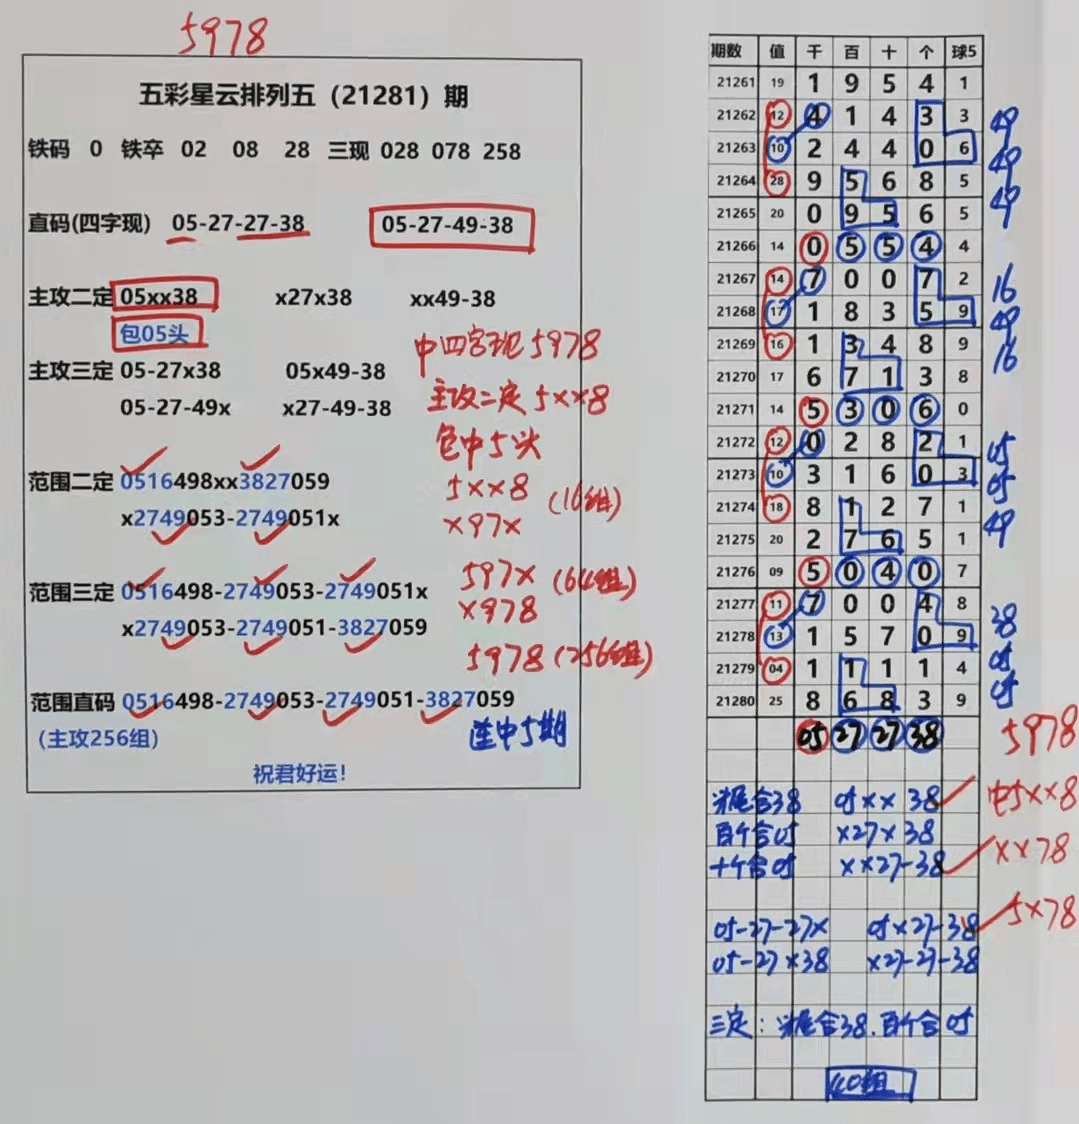 5978
五彩星云排列五（21281）期
铁码 0 铁卒 02 08 28 三现 028 078 258
直码(四字现) 05-27-27-38 05-27-49-38
主攻二定 05xx38 x27x38 xx49-38
包05头
中四字现5978
主攻三定 05-27x38 05x49-38
主攻二定5××8
05-27-49x x27-49-38
包中5头
范围二定 0516498xx3827059
5××8 (16组)
x2749053-2749051x
×97×
范围三定 0516498-2749053-2749051x
597× (64组)
x2749053-2749051-3827059
×978
5978 (256组)
范围直码 0516498-2749053-2749051-3827059
(主攻256组)
连中5期
祝君好运!
期数 值 千 百 十 个 球5
21261 19 1 9 5 4 1
21262 12 4 1 4 3 3 49
21263 10 2 4 4 0 6 49
21264 28 9 5 6 8 5 49
21265 20 0 9 5 6 5
21266 14 0 5 5 4 4
21267 14 7 0 0 7 2 16
21268 17 1 8 3 5 9 49
21269 16 1 3 4 8 9 16
21270 17 6 7 1 3 8
21271 14 5 3 0 6 0
21272 12 0 2 8 2 1 05
21273 10 3 1 6 0 3 05
21274 18 8 1 2 7 1 49
21275 20 2 7 6 5 1
21276 09 5 0 4 0 7
21277 11 7 0 0 4 8 38
21278 13 1 5 7 0 9 05
21279 04 1 1 1 1 4 05
21280 25 8 6 8 3 9
05 27 27 38 5978
尾合38 05×× 38 中5××8
百个合05 ×27×38
十个合05 ××27-38 ××78
05-27-27× 05×27-38 5×78
05-27×38 ×27-27-38
三定：尾合38.百个合05
40组